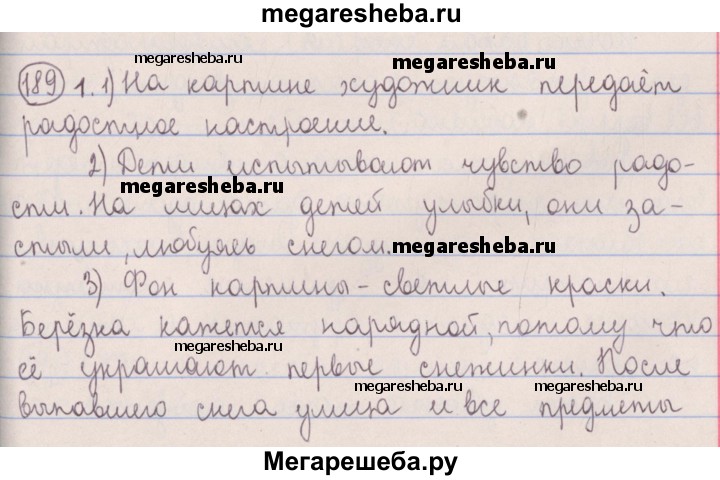 megaresheba.ru
megaresheba.ru megaresheba.ru
189 1. 1) На картине художник передаёт
радостное настроение.
2) Дети испытывают чувство радо-
megaresheba.ru
сти. На лицах детей улыбки, они за-
стыли, любуясь снегом. megaresheba.ru
3) Фон картины - светлые краски.
Берёзка кажется нарядной, потому что
megaresheba.ru
её украшают первые снежинки. После
megaresheba.ru megaresheba.ru
выпавшего снега улица и все предметы
Мегарешеба.ру